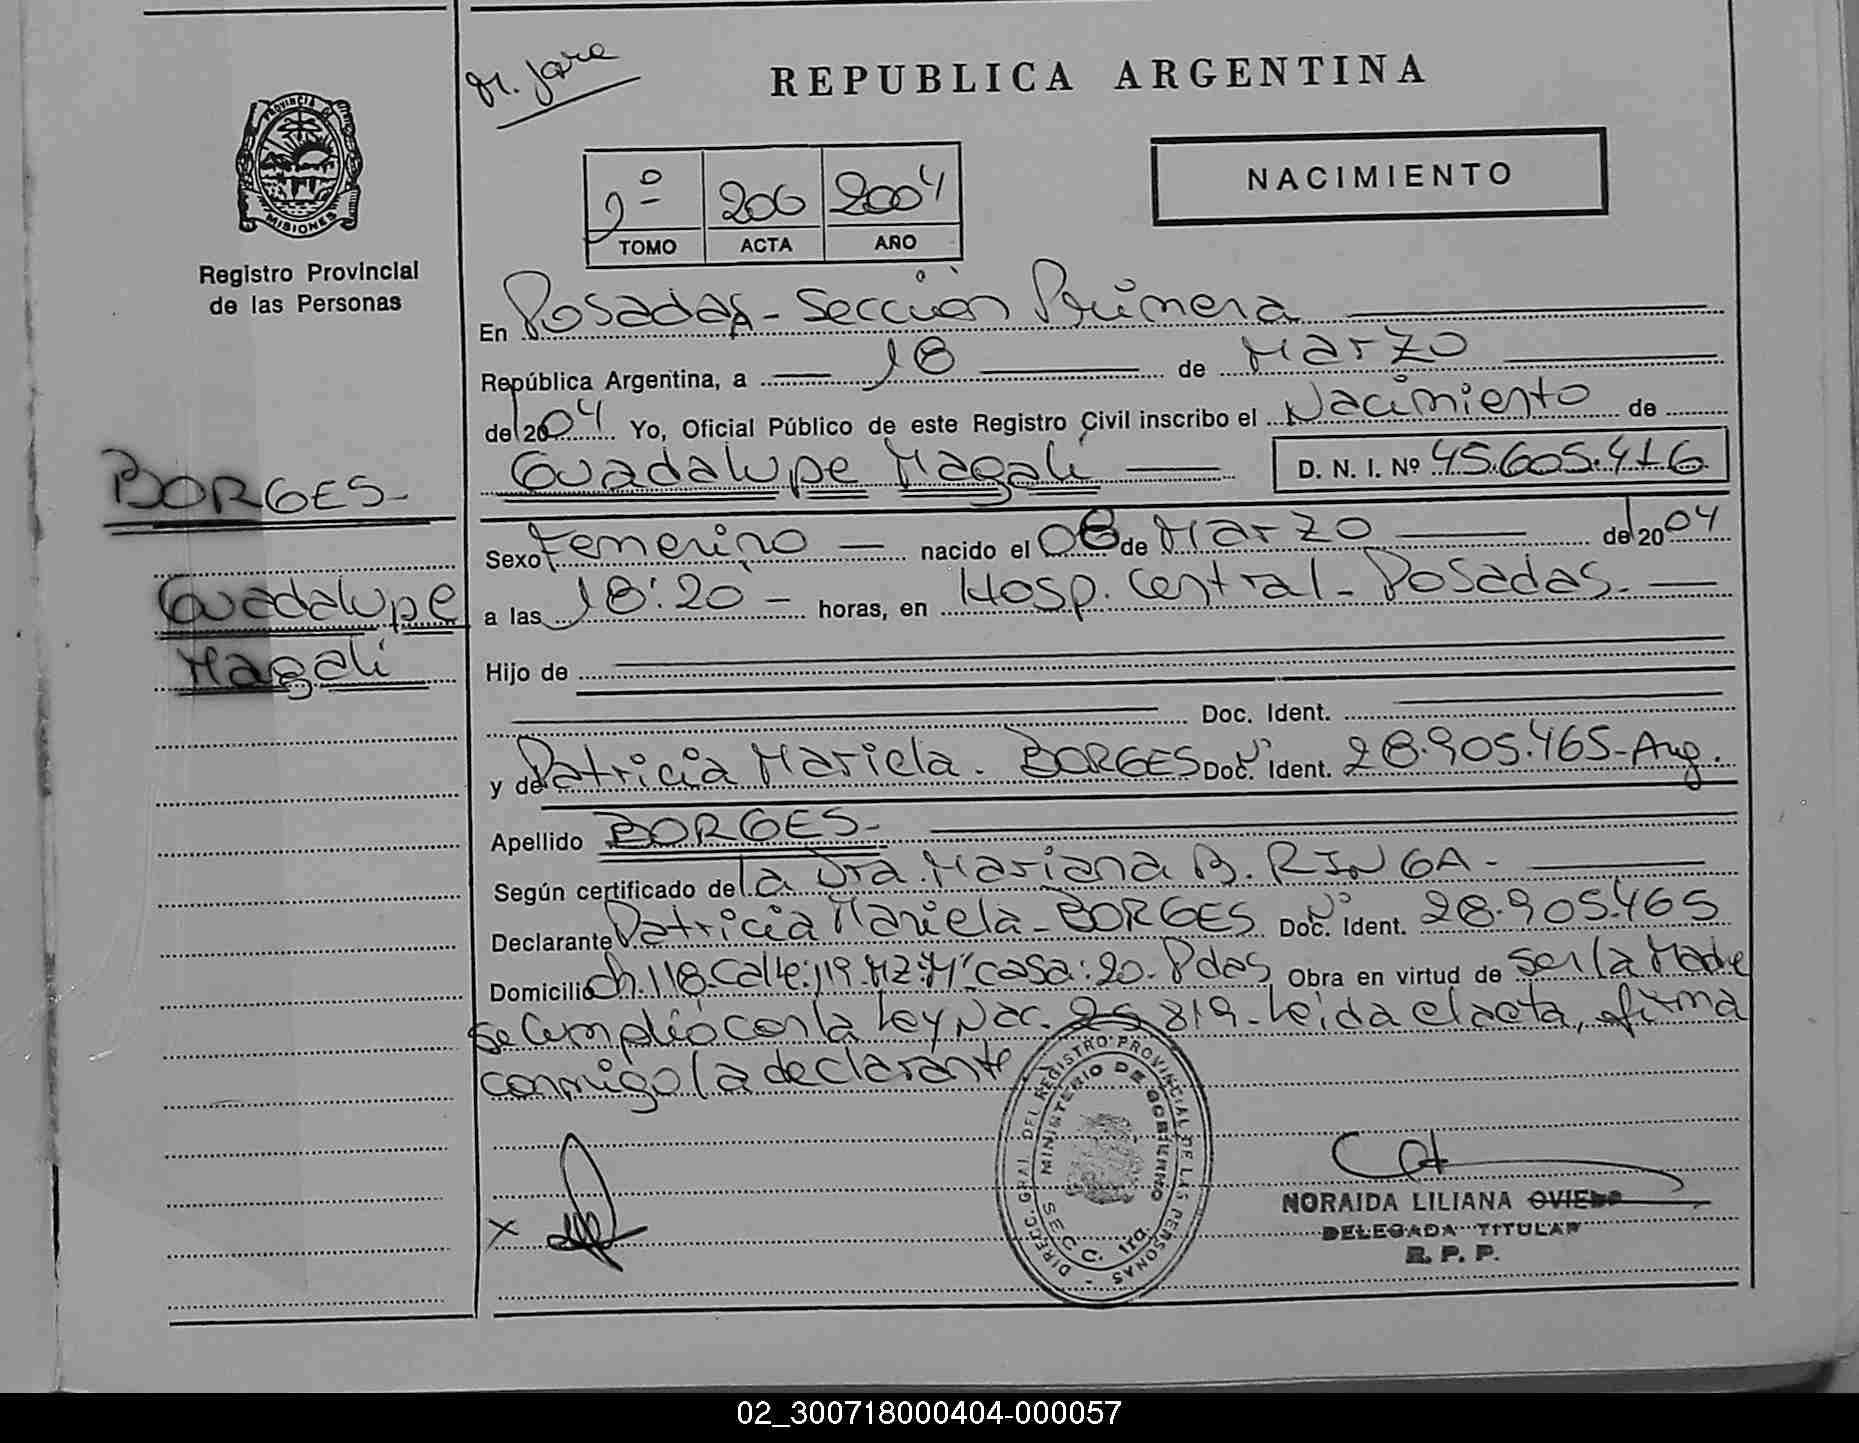 M. Jara
REPUBLICA ARGENTINA
NACIMIENTO
2º 206 2004
TOMO ACTA AÑO
PROVINCIA DE MISIONES
Registro Provincial
de las Personas
En Posadas - Sección Primera
República Argentina, a 18 de Marzo
del 2004 Yo, Oficial Público de este Registro Civil inscribo el Nacimiento de
Guadalupe Magali D. N. I. Nº 45.605.416
BORGES-
Guadalupe
Magali
Sexo Femenino - nacido el 08 de Marzo del 2004
a las 18:20 - horas, en Hosp. Central - Posadas.-
Hijo de
Doc. Ident.
y de Patricia Mariela. BORGES Doc. Nº Ident. 28.905.465-Arg.
Apellido BORGES-
Según certificado de la Dra. Mariana B. RINGA-
Declarante Patricia Mariela - BORGES Doc. Nº Ident. 28.905.465
Domicilio ch. 118. Calle: 119. MZ: "M" casa: 20. Pdas Obra en virtud de ser la Madre
se Cumplió con la Ley Nac. 25.819. Leída el acta, firma
conmigo la declarante
X
DIRECC. GRAL. DEL REGISTRO PROVINCIAL DE LAS PERSONAS -
MINISTERIO DE GOBIERNO
SECC. 1ra.
NORAIDA LILIANA OVIEDO
DELEGADA TITULAR
R. P. P.
02_300718000404-000057